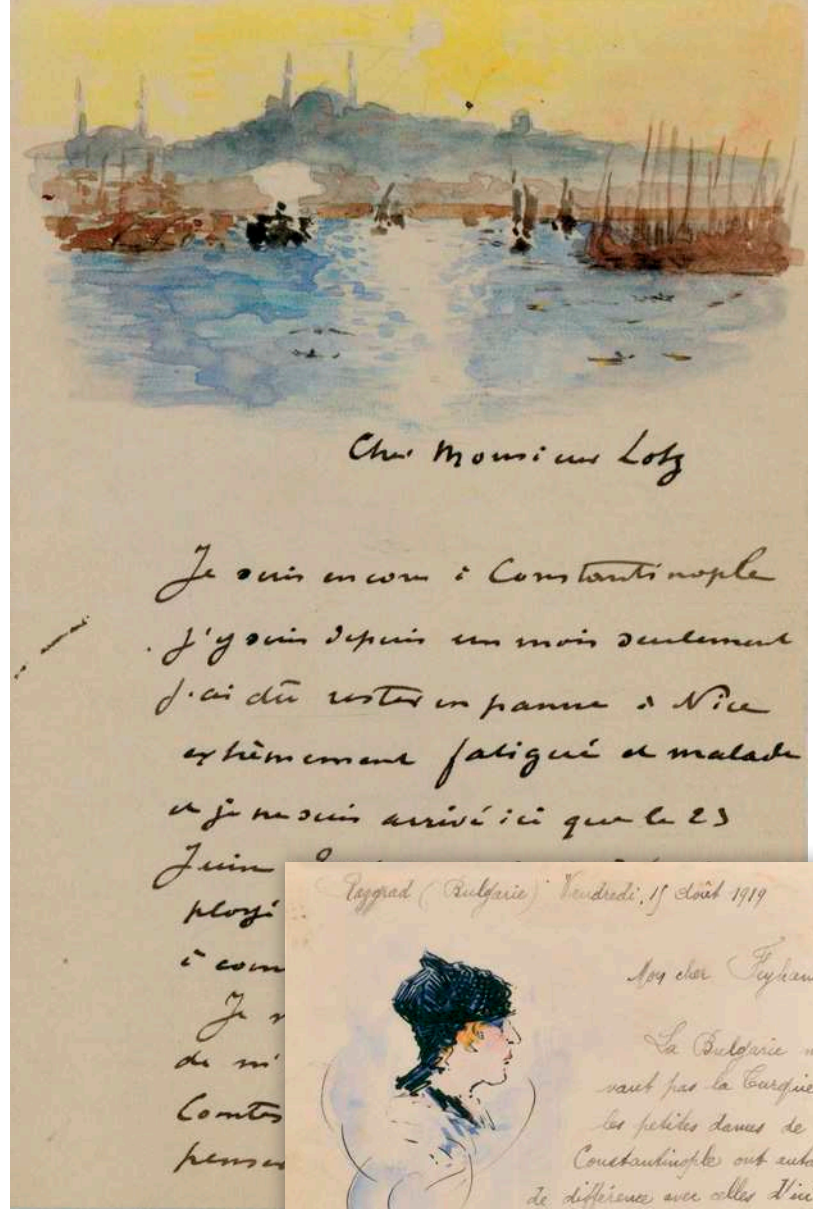 Cher Monsieur Lotz
Je suis encore à Constantinople
j'y suis depuis un mois seulement
J'ai dû rester en panne à Nice
extrêmement fatigué et malade
et je ne suis arrivé ici que le 23
Juin
ployé
à com
Je
de m'
Comtes
penser
Razgrad (Bulgarie) Vendredi, 15 Août 1919
Mon cher
La Bulgarie
vaut pas la Turquie
les petites dames de
Constantinople ont auta
de différence avec celles d'ici